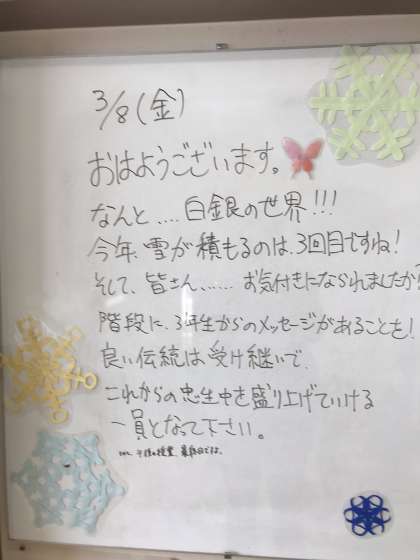 3/8(金)
おはようございます。
なんと....白銀の世界!!!
今年、雪が積もるのは、3回目ですね!
そして、皆さん、......お気付きになられましたか?
階段に、3年生からのメッセージがあることを!
良い伝統は受け継いで、
これからの忠生中を盛り上げていける
一員となって下さい。